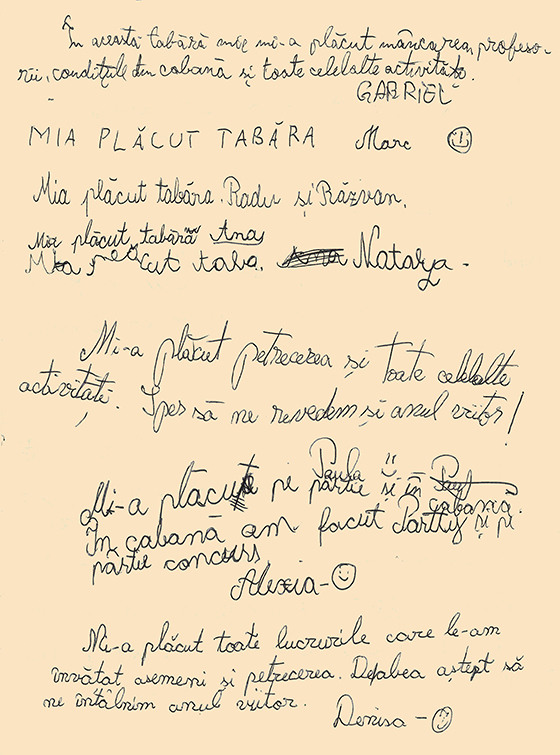 În această tabără mie mi-a plăcut mâncarea, profeso-
rii, condițiile din cabană și toate celelalte activități.
GABRIEL
MIA PLĂCUT TABĂRA Marc
Mia plăcut tabăra. Radu și Răzvan.
Mia plăcut tabăra Ana
Mia plăcut taba. Natalya -
Mi-a plăcut petrecerea și toate celelalte
activități. Sper să ne revedem și anul viitor!
Paula
Mi-a plăcut pe pârtie și în cabană.
În cabană am facut Partty și pe
pârtie concurs
Alexia -
Mi-a plăcut toate lucrurile care le-am
învățat asemeni și petrecerea. Deabea aștept să
ne întâlnim anul viitor.
Denisa -